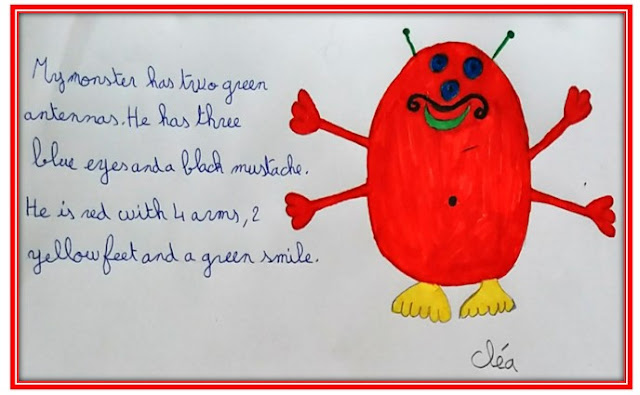 My monster has two green
antennas. He has three
blue eyes and a black mustache.
He is red with 4 arms, 2
yellow feet and a green smile.
Cléa